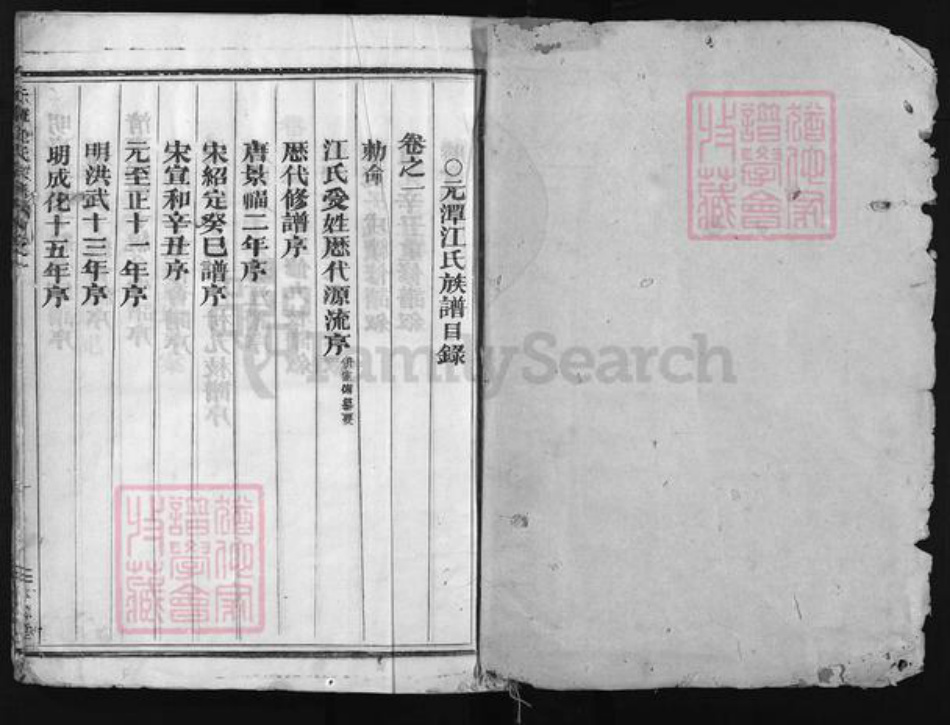 〇元潭江氏族譜目錄
卷之一
勅命
江氏受姓歷代源流序
歷代修譜序
唐景福二年序
宋紹定癸巳譜序
宋宣和辛丑序
元至正十一年序
明洪武十三年序
明成化十五年序
猶他家譜學會收藏
猶他家譜學會收藏
FamilySearch